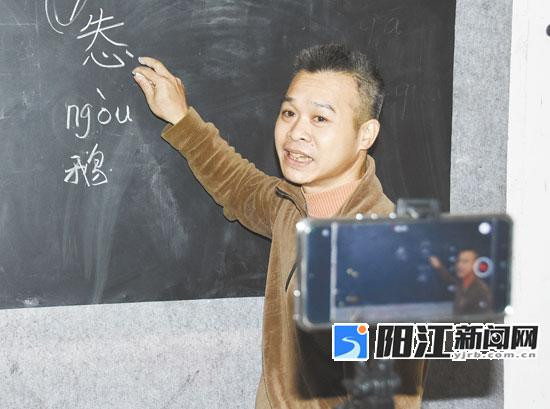 ngòu
鹅
阳江新闻网
yjrb.com.cn